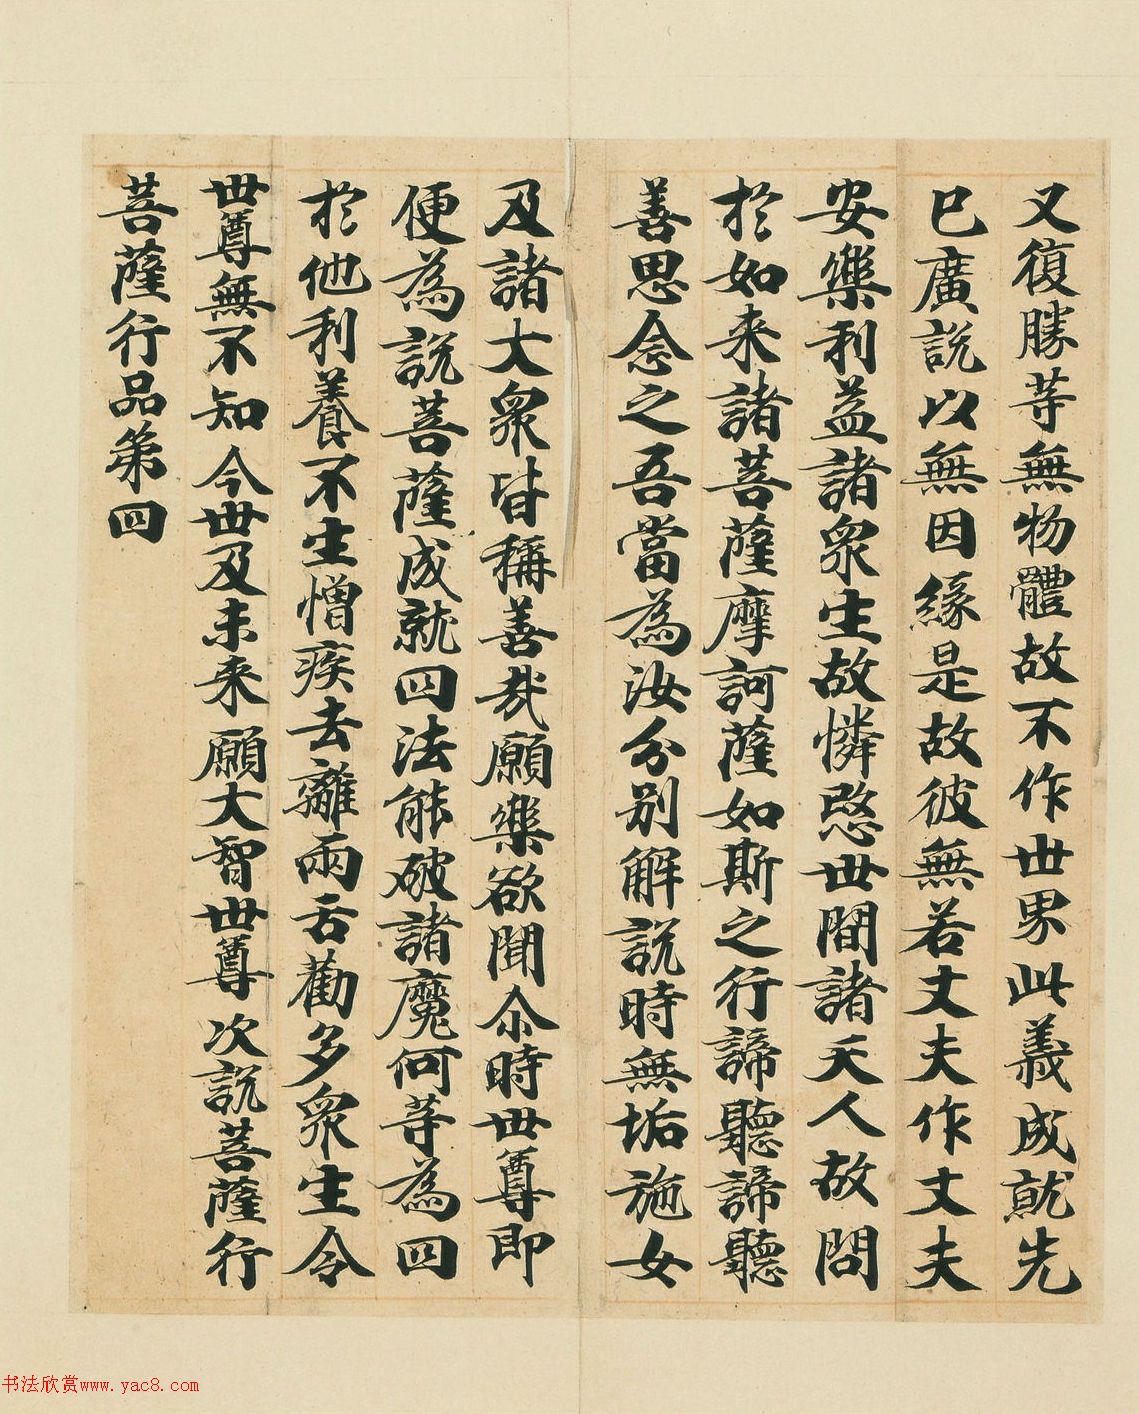 又復勝等無物體故不作世界此義成就先
已廣說以無因緣是故彼無若丈夫作丈夫
安樂利益諸衆生故憐愍世間諸天人故問
於如来諸菩薩摩訶薩如斯之行諦聽諦聽
善思念之吾當為汝分別解說時無垢施女
及諸大衆皆稱善哉願樂欲聞尒時世尊即
便為說菩薩成就四法能破諸魔何等為四
於他利養不生憎疾去離兩舌勸多衆生令
世尊無不知今世及未来願大智世尊次說菩薩行
菩薩行品第四
书法欣赏www.yac8.com